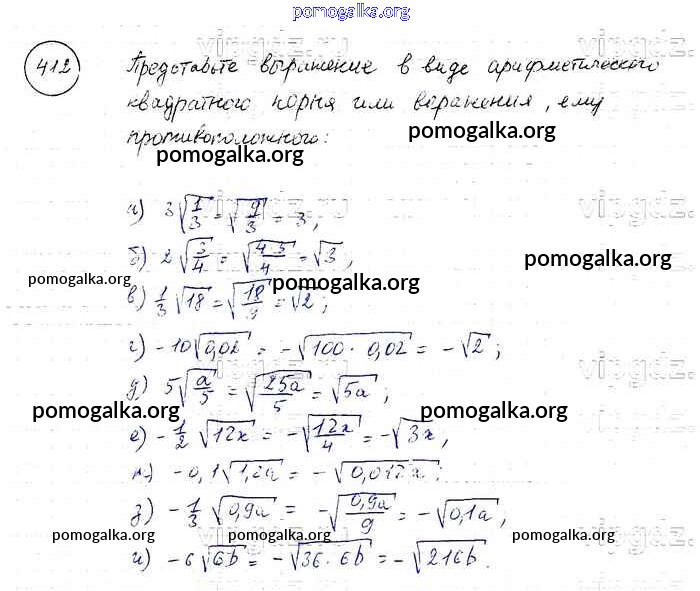 pomogalka.org
vipgdz.ru
412
Представьте выражение в виде арифметического
квадратного корня или выражения, ему
pomogalka.org
противоположного:
pomogalka.org
а) 3√(1/3) = √(9/3) = 3,
vipgdz.ru
vipgdz.ru
б) 2√(3/4) = √(4·3/4) = √3,
pomogalka.org
pomogalka.org
pomogalka.org
в) 1/3 √18 = √(18/9) = √2;
г) -10√0,02 = -√(100 · 0,02) = -√2;
д) 5√(a/5) = √(25a/5) = √5a;
pomogalka.org
pomogalka.org
е) -1/2 √12x = -√(12x/4) = -√3x,
ж) -0,1√1,2a = -√0,012a;
з) -1/3 √0,9a = -√(0,9a/9) = -√0,1a,
pomogalka.org
pomogalka.org
pomogalka.org
и) -6√6b = -√(36 · 6b) = -√216b.